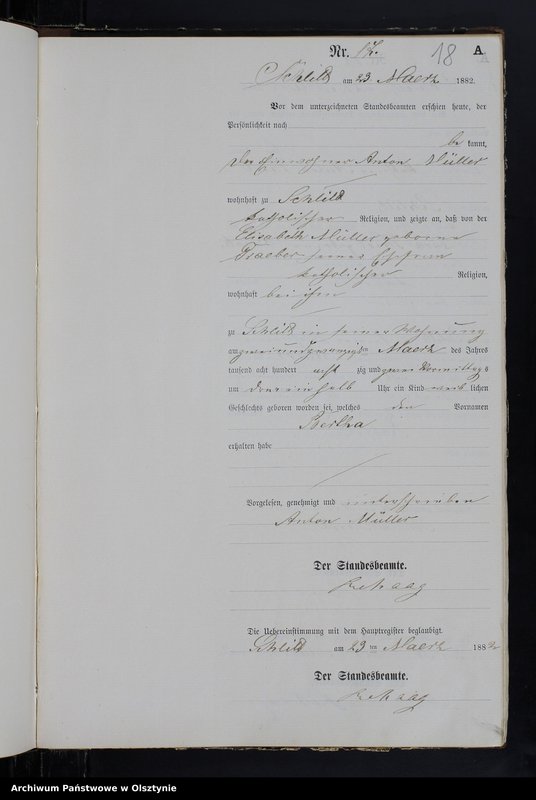 Nr. 17. 18 A
Schlitt am 23 Maerz 1882.
Vor dem unterzeichneten Standesbeamten erschien heute, der
Persönlichkeit nach
be kannt,
der Einwohner Anton Müller
wohnhaft zu Schlitt
katholischer Religion, und zeigte an, daß von der
Elisabeth Müller geborne
seiner Ehefrau
katholischer Religion,
wohnhaft bei ihm
zu Schlitt in seiner Wohnung
am zweiundzwanzigsten Maerz des Jahres
tausend acht hundert acht zig und zwei Vormittags
um drei einhalb Uhr ein Kind weib lichen
Geschlechts geboren worden sei, welches den Vornamen
Bertha
erhalten habe
Vorgelesen, genehmigt und unterschrieben
Anton Müller
Der Standesbeamte.
Die Uebereinstimmung mit dem Hauptregister beglaubigt.
Schlitt am 23 ten Maerz 1882
Der Standesbeamte.
Archiwum Państwowe w Olsztynie